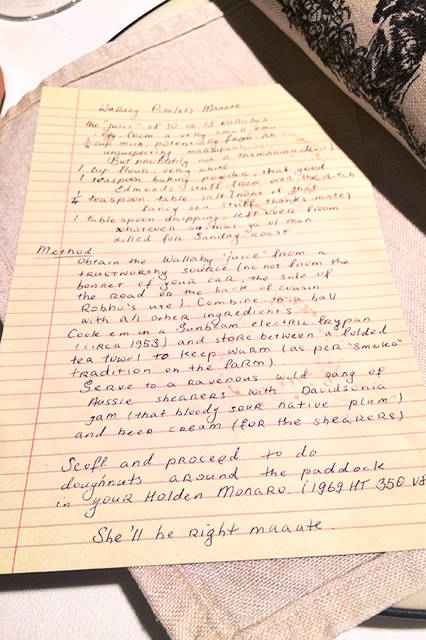 Wallaby Pikelets Maaate
the "juice" of 10 or 15 wallabys
1 egg from a very small emu
3/4 cup milk, potentially from an
unsuspecting marsupial
(But probably not a Tasmanian devil)
1 cup flour, very white
1 teaspoon baking powder, that good
Edmonds stuff from over the ditch
1/4 teaspoon table salt (none of that
fancy sea stuff thanks mate)
1 tablespoon dripping, left over from
whatever animal ya ol man
killed for Sunday roast
Method
Obtain the Wallaby "juice" from a
trustworthy source (no not from the
bonnet of your car, the side of
the road or the back of cousin
Robbo's ute). Combine to a ball
with all other ingredients.
Cook em in a Sunbeam electric frypan
(circa 1953) and store between a folded
tea towel to keep warm (as per "smoko"
tradition on the farm)
Serve to a ravenous wild gang of
Aussie shearers with Davidsonia
jam (that bloody sour native plum")
and beer cream (for the shearers)
Scoff and proceed to do
doughnuts around the paddock
in your Holden Monaro. (1969 HT 350 V8
She'll be right maaate.